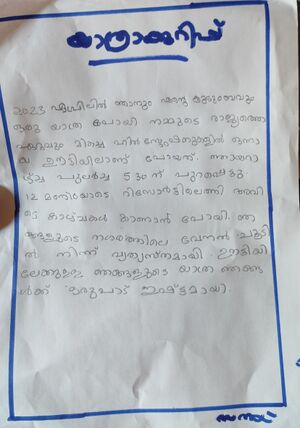 യാത്രാക്കുറിപ്പ്
2023 ഏപ്രിലിൽ ഞാനും എന്റെ കുടുംബവും
ഒരു യാത്ര പോയി നമ്മുടെ രാജ്യത്തെ
ഏറ്റവും മികച്ച ഹിൽ സ്റ്റേഷനുകളിൽ ഒന്നാ
യ ഊട്ടിയിലാണ് പോയത്. ഞായറാ
ഴ്ച്ച പുലർച്ച 5.30 ന് പുറപ്പെട്ടു
12 മണിയോടെ റിസോർട്ടിലെത്തി അവി
ടെ കാഴ്ചകൾ കാണാൻ പോയി. ഞ
ങ്ങളുടെ നഗരത്തിലെ വേനൽ ചൂടിൽ
ൽ നിന്ന് വ്യത്യസ്തമായി ഊട്ടിയി
ലേക്കുള്ള ഞങ്ങളുടെ യാത്ര ഞങ്ങ
ൾക്ക് ഒരുപാട് ഇഷ്ട്ടമായി.